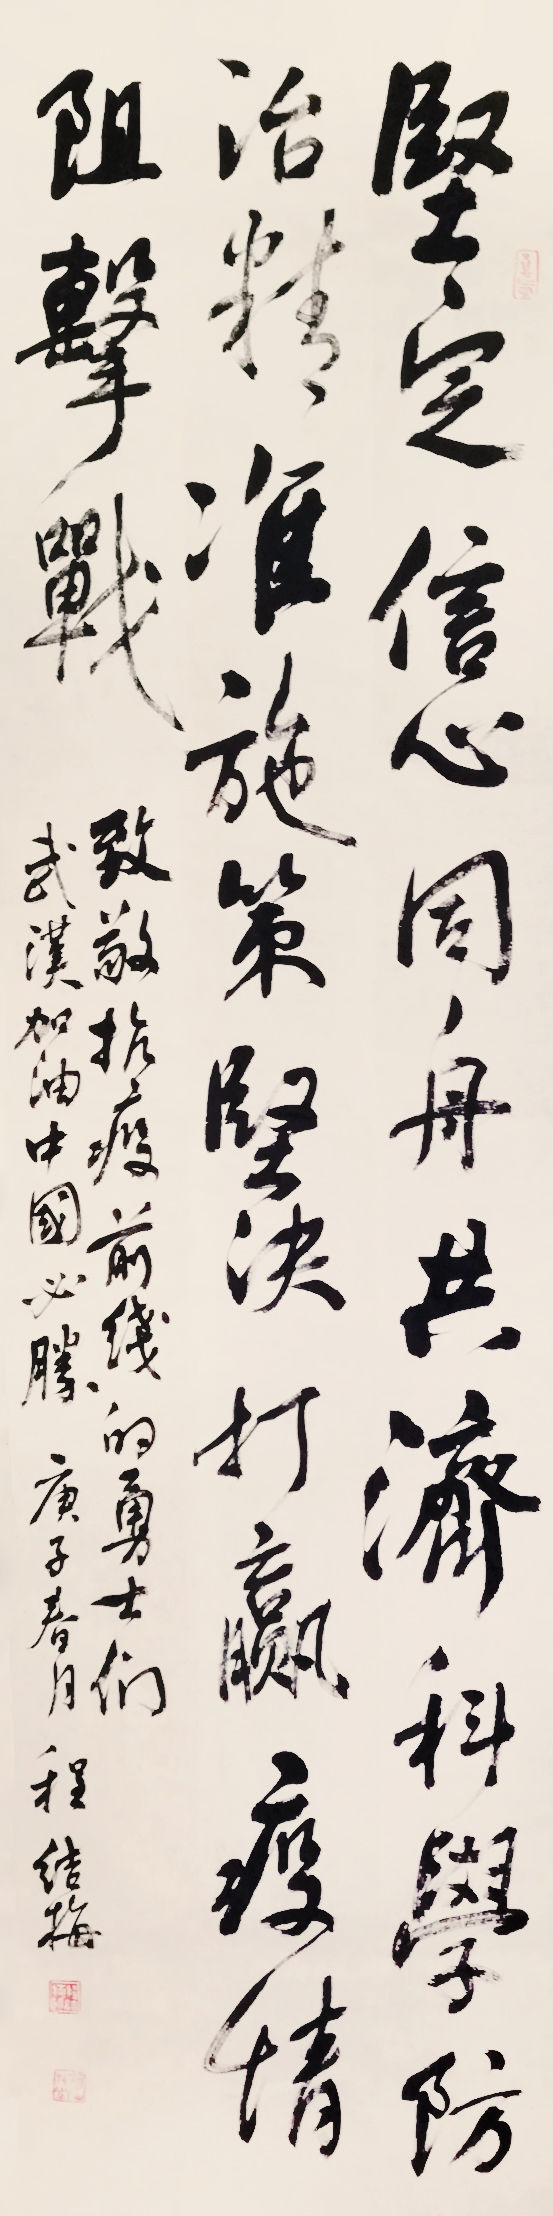 堅定信心同舟共濟科學防
治精准施策堅決打贏疫情
阻擊戰
致敬抗疫前线的勇士们
武漢加油中國必勝 庚子春月 程结梅